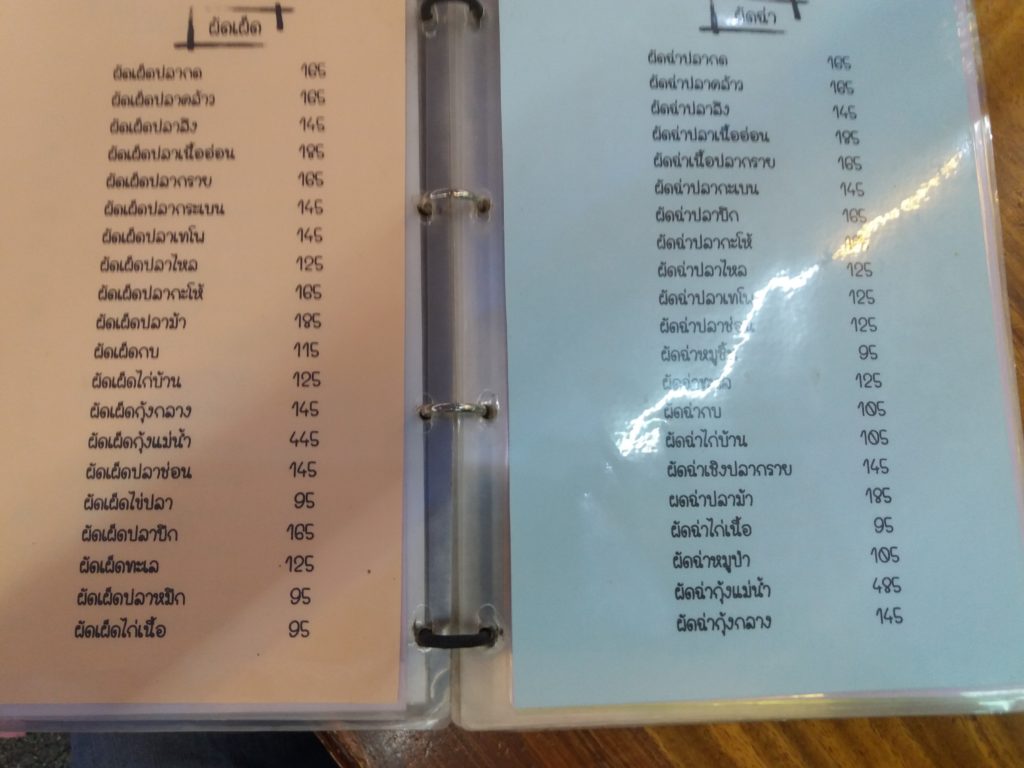 ผัดเผ็ด
ผัดเผ็ดปลากด 165
ผัดเผ็ดปลาคล้าว 165
ผัดเผ็ดปลาลิง 145
ผัดเผ็ดปลาเนื้ออ่อน 185
ผัดเผ็ดปลากราย 165
ผัดเผ็ดปลากระเบน 145
ผัดเผ็ดปลาเทโพ 145
ผัดเผ็ดปลาไหล 125
ผัดเผ็ดปลากะโห้ 165
ผัดเผ็ดปลาม้า 185
ผัดเผ็ดกบ 115
ผัดเผ็ดไก่บ้าน 125
ผัดเผ็ดกุ้งกลาง 145
ผัดเผ็ดกุ้งแม่น้ำ 445
ผัดเผ็ดปลาช่อน 145
ผัดเผ็ดไข่ปลา 95
ผัดเผ็ดปลาบึก 165
ผัดเผ็ดทะเล 125
ผัดเผ็ดปลาหมึก 95
ผัดเผ็ดไก่เนื้อ 95
ผัดฉ่า
ผัดฉ่าปลากด 165
ผัดฉ่าปลาคล้าว 165
ผัดฉ่าปลาลิง 145
ผัดฉ่าปลาเนื้ออ่อน 185
ผัดฉ่าเนื้อปลากราย 165
ผัดฉ่าปลากะเบน 145
ผัดฉ่าปลาบึก 165
ผัดฉ่าปลากะโห้
ผัดฉ่าปลาไหล 125
ผัดฉ่าปลาเทโพ 125
ผัดฉ่าปลาช่อน 125
95
ผัดฉ่าทะเล 125
ผัดฉ่ากบ 105
ผัดฉ่าไก่บ้าน 105
ผัดฉ่าเชิงปลากราย 145
ผดฉ่าปลาม้า 185
ผัดฉ่าไก่เนื้อ 95
ผัดฉ่าหมูป่า 105
ผัดฉ่ากุ้งแม่น้ำ 485
ผัดฉ่ากุ้งกลาง 145